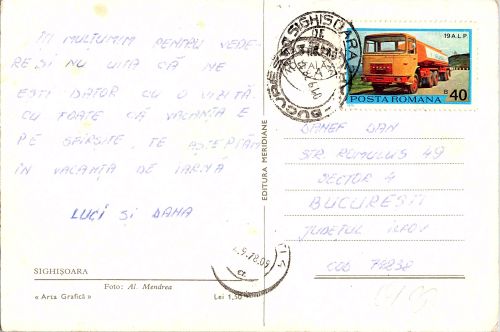 ÎȚI MULȚUMIM PENTRU VEDE-
RE ȘI NU UITA CĂ NE
EȘTI DATOR CU O VIZITĂ.
CU TOATE CĂ VACANȚA E
PE SFÎRȘITE, TE AȘTEPTĂM
ÎN VACANȚA DE IARNĂ
LUCI ȘI DANA
SIGHIȘOARA
Foto: Al. Mendrea
« Arta Grafică »
Lei 1,50
EDITURA MERIDIANE
SIGHIȘOARA
19 A.L.P.
POSTA ROMANA
B 40
DAN
STR ROMULUS 49
SECTOR 4
BUCUREȘTI
JUDEȚUL ILFOV
COD 74238